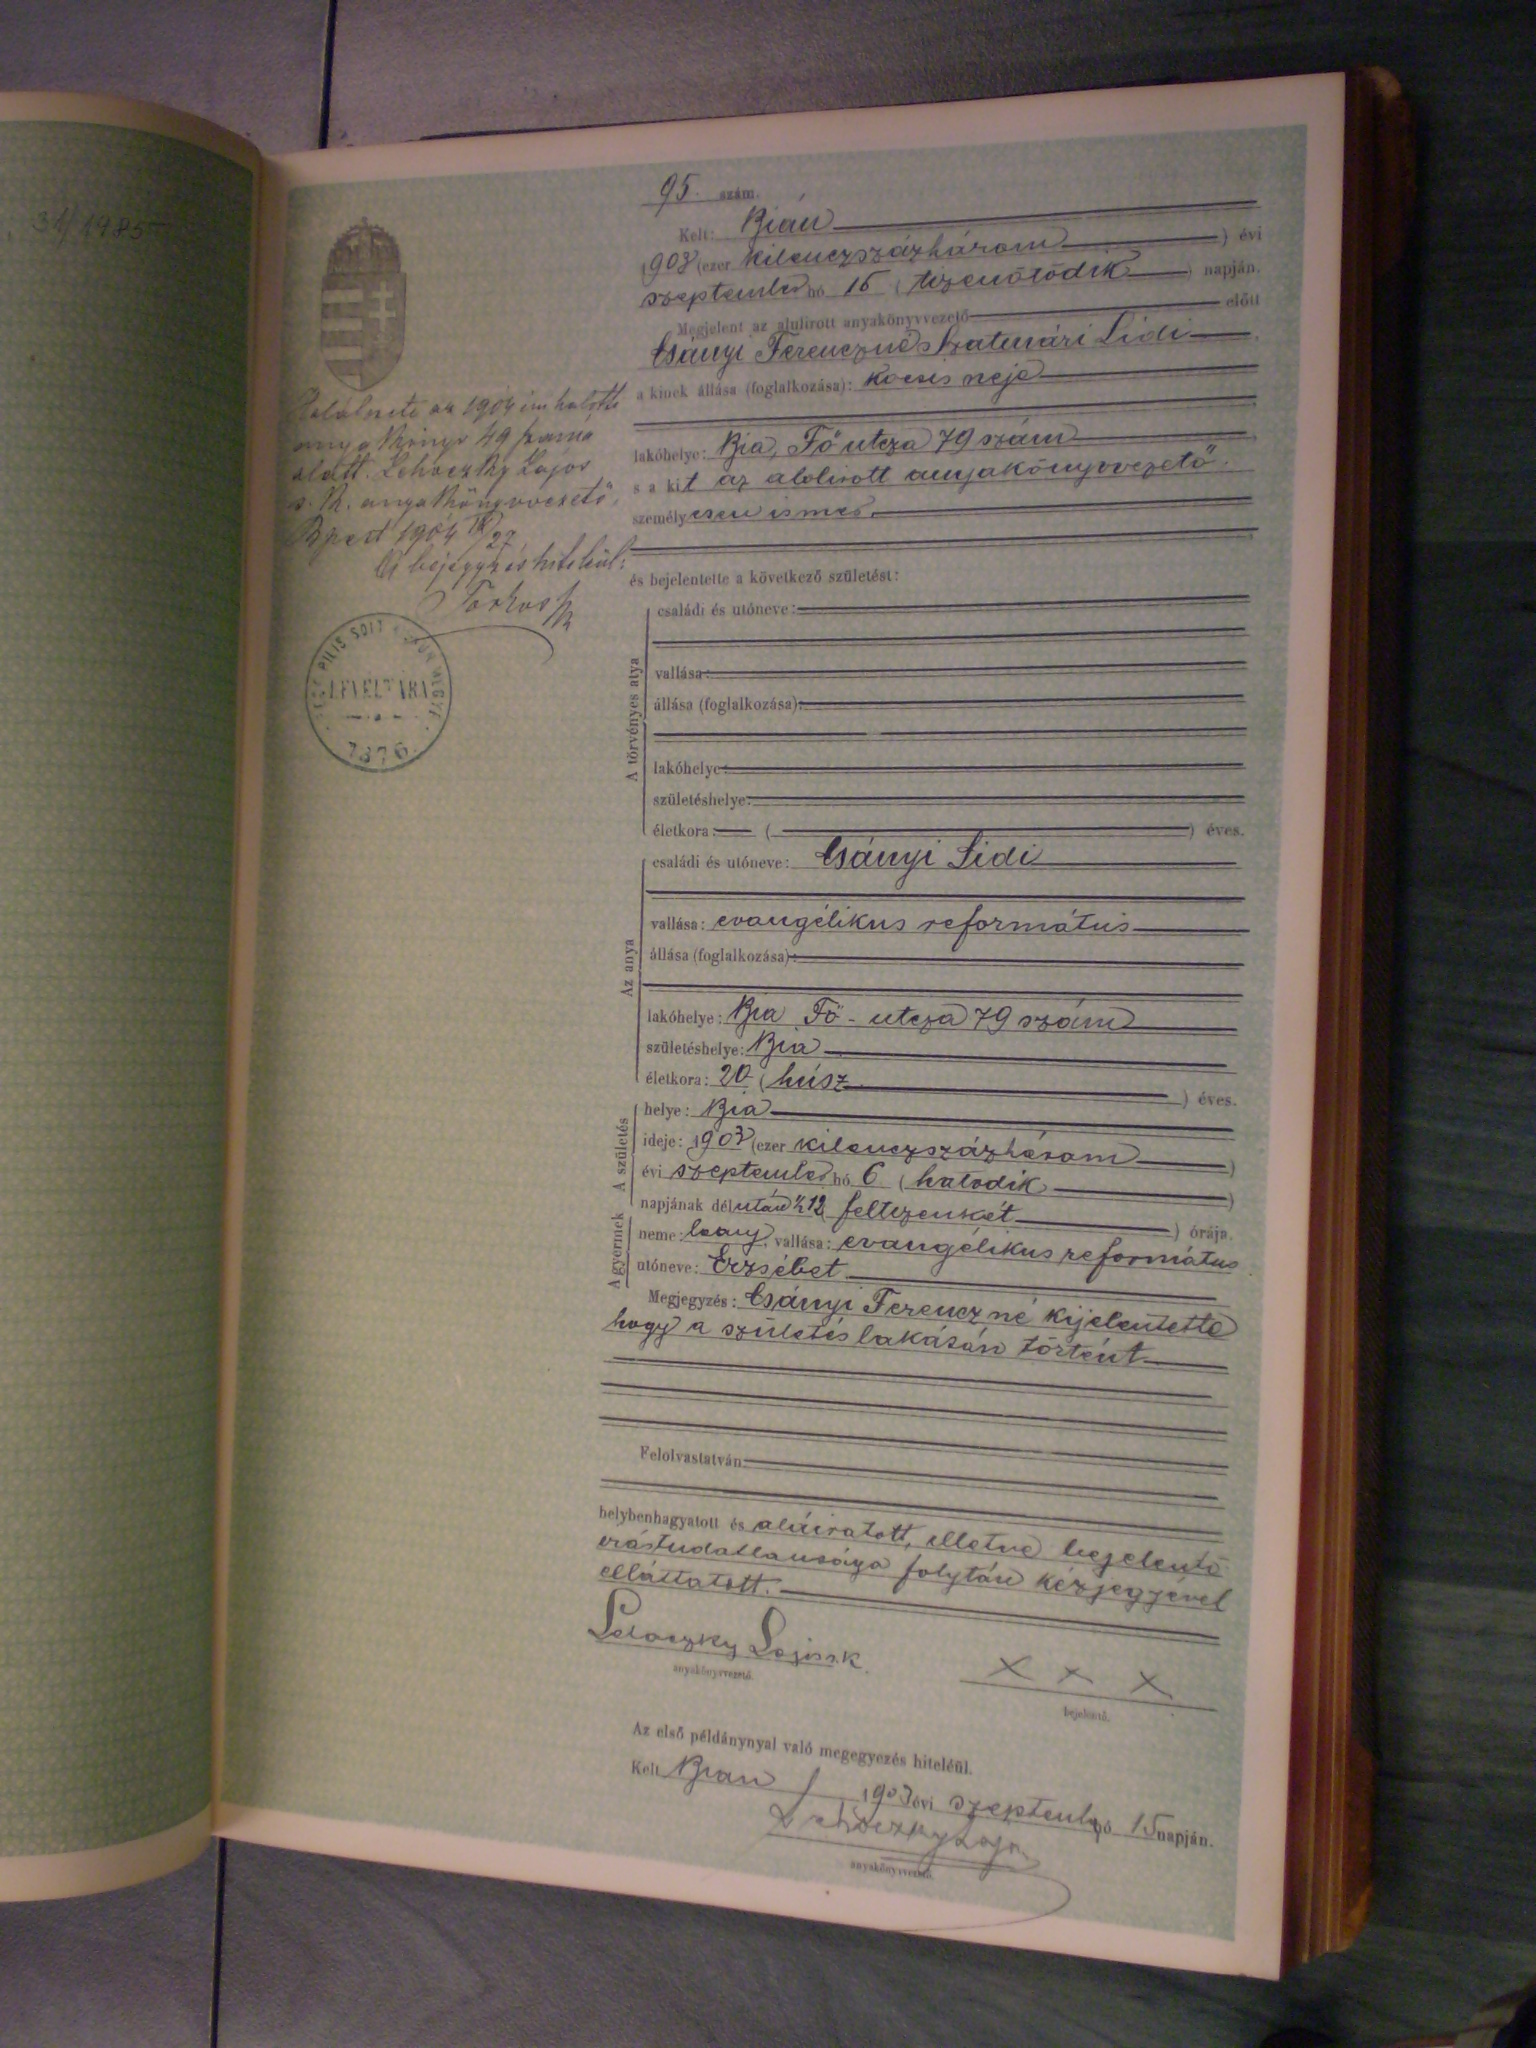 31/1985
95. szám.
Kelt: Bián
1903 (ezer kilenczszázhárom ) évi
szeptember hó 15 ( tizenötödik ) napján.
Megjelent az alulirott anyakönyvvezető előtt
Csányi Ferenczné Szatmári Lidi
a kinek állása (foglalkozása): kocsis neje
lakóhelye: Bia, Fő utcza 79 szám
s a kit az alolirott anyakönyvvezető
személyesen ismer.
és bejelentette a következő születést:
A törvényes atya
családi és utóneve:
vallása:
állása (foglalkozása):
lakóhelye:
születéshelye:
életkora: ( ) éves.
Az anya
családi és utóneve: Csányi Lidi
vallása: evangélikus református
állása (foglalkozása):
lakóhelye: Bia Fő-utcza 79 szám
születéshelye: Bia
életkora: 20 (húsz ) éves.
A születés
helye: Bia
ideje: 1903 (ezer kilenczszázhárom )
évi szeptember hó 6 ( hatodik )
napjának délután ½12 féltizenkét ) órája.
A gyermek
neme: leany, vallása: evangélikus református
utóneve: Erzsébet
Megjegyzés: Csányi Ferenczné kijelentette
hogy a születés lakásán történt.
Felolvastatván
helybenhagyatott és aláiratott, illetve bejelentő
irástudatlansága folytán kézjegyével
elláttatott.
Lehoczky Lajos s.k.
anyakönyvvezető.
x x x
bejelentő.
Az első példánynyal való megegyezés hiteléül.
Kelt Bián 1903 évi szeptember hó 15 napján.
Lehoczky Lajos
anyakönyvvezető.
Halálesete az 1904 halotti
anyakönyv 49 száma
alatt. Lehoczky Lajos
s. k. anyakönyvvezető.
Bpest 1904 27
A bejegyzés hiteléül:
Torkos
PEST PILIS SOLT KISKUN MEGYE
LEVELTÁRA
1876